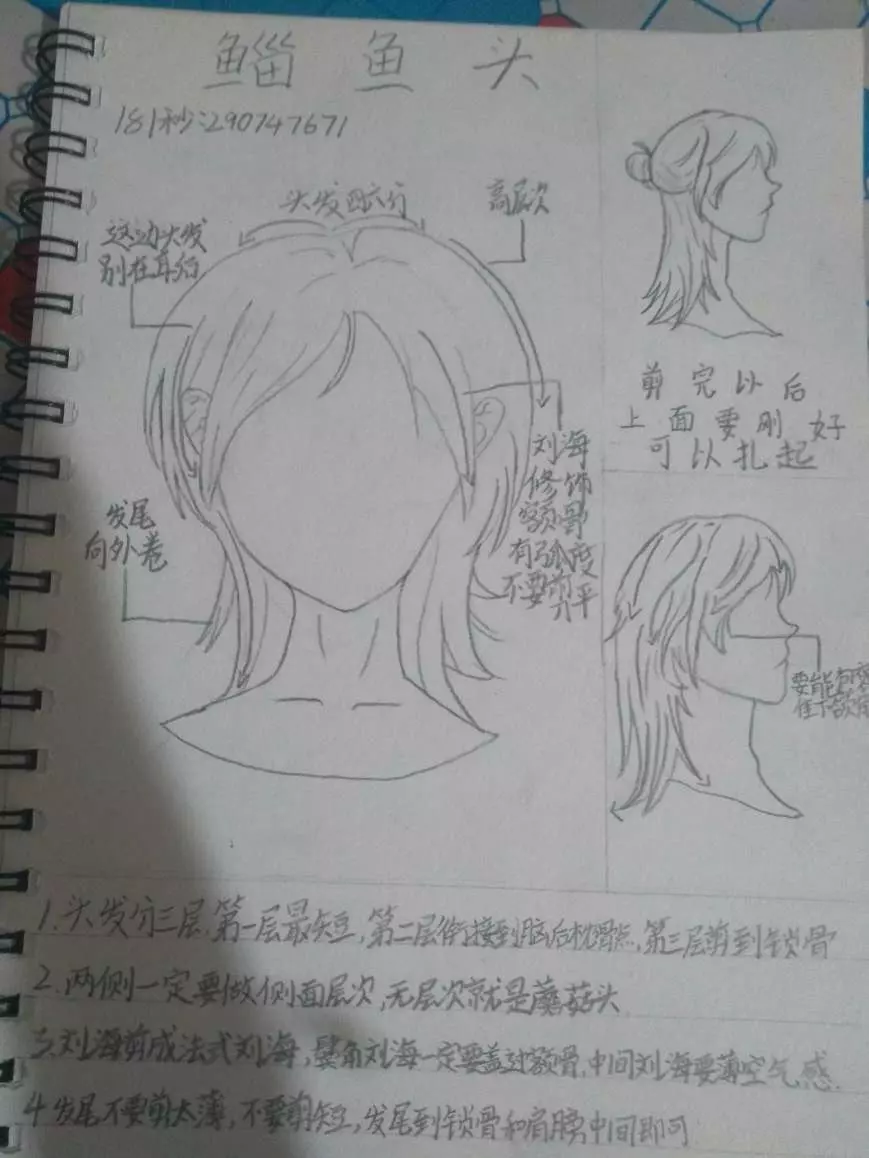 鲻鱼头
181秒:290747671
头发四六分
高层次
这边头发
别在耳后
剪完以后
上面要刚好
可以扎起
刘海
修饰
额骨
有弧度
不要剪平
发尾
向外卷
1.头发分三层,第一层最短,第二层衔接到脑后枕骨点,第三层剪到锁骨
2.两侧一定要做侧面层次,无层次就是蘑菇头
3.刘海剪成法式刘海,鬓角刘海一定要盖过额骨,中间刘海要薄空气感.
4.发尾不要剪太薄,不要剪短,发尾到锁骨和肩膀中间即可